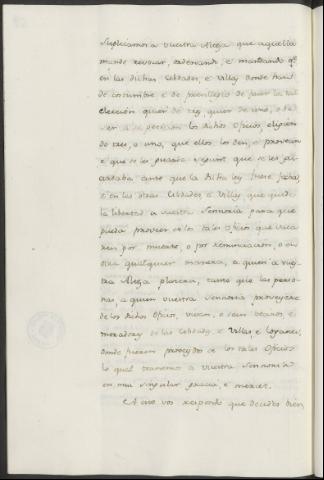 Suplicamos a vuestra Alteza que aquella
mande revocar, ordenando, e mandando qᵉ
en las dichas Cibdades, e Villas donde han
de costumbre e de previllegio de facer la tal
elección quier de tres, quier de uno,
los dichos Oficios, elijan
de tres, o uno, que ellos los den, e provean
e que se les guarde segunt que se les
guardaba antes que la dicha ley fuese fecha,
e en las otras Cibdades, e Villas que quede
la libertad a vuestra Sennoria para que
pueda proveer en los tales oficios que vaca
ren por muerte, o por renunciacion, o en
otra qualquier manera, a quien a vues
tra Alteza ploviera, tanto que las perso
nas, a quien vuestra Sennoria proveyere
de los dichos Oficios, vivan, o sean vecinos, e
moradores de las Cibdades, e Villas, e Logares,
donde fueren proveydos de los tales Oficios
lo qual ternemos a vuestra Sennoria
en muy singular gracia, e merced.
A esto vos respondo que decides bien,